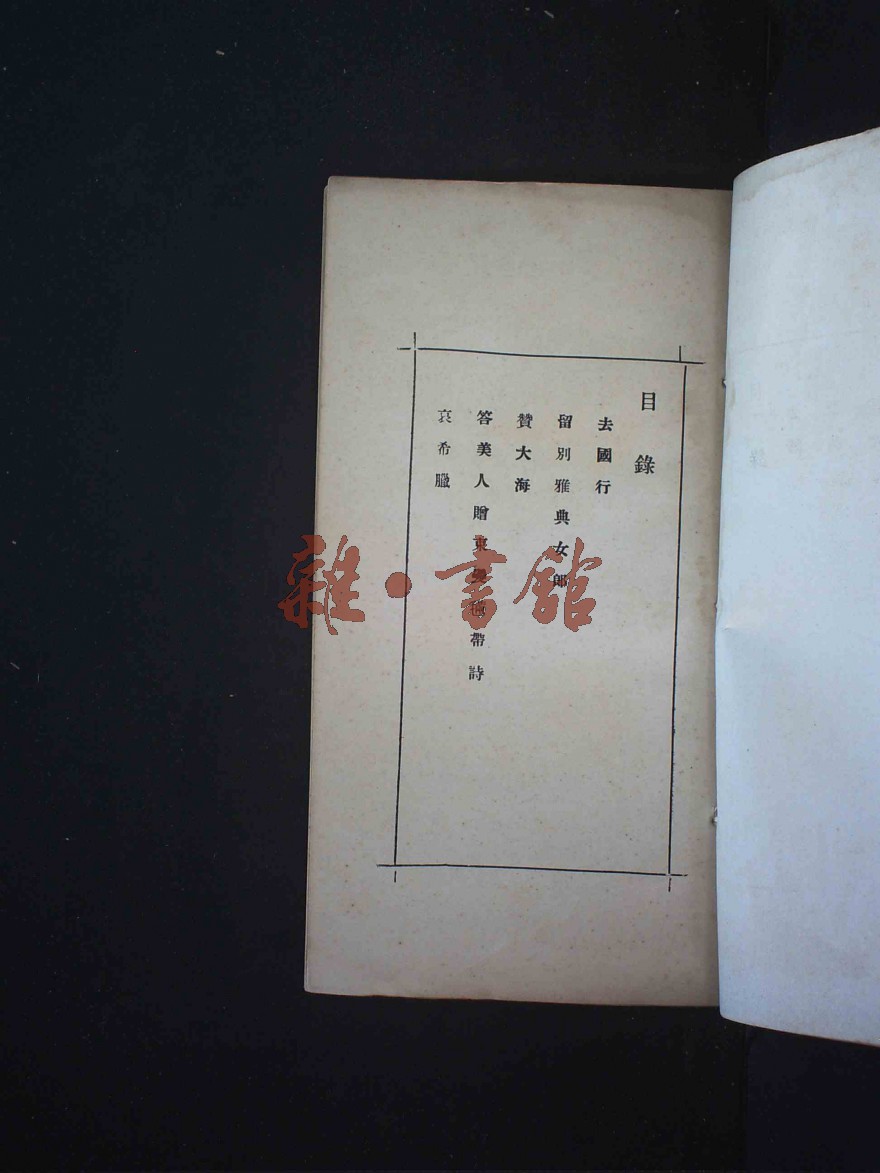 目錄
去國行
留別雅典女郎
贊大海
答美人贈束髮㲲帶詩
哀希臘
雜·書館